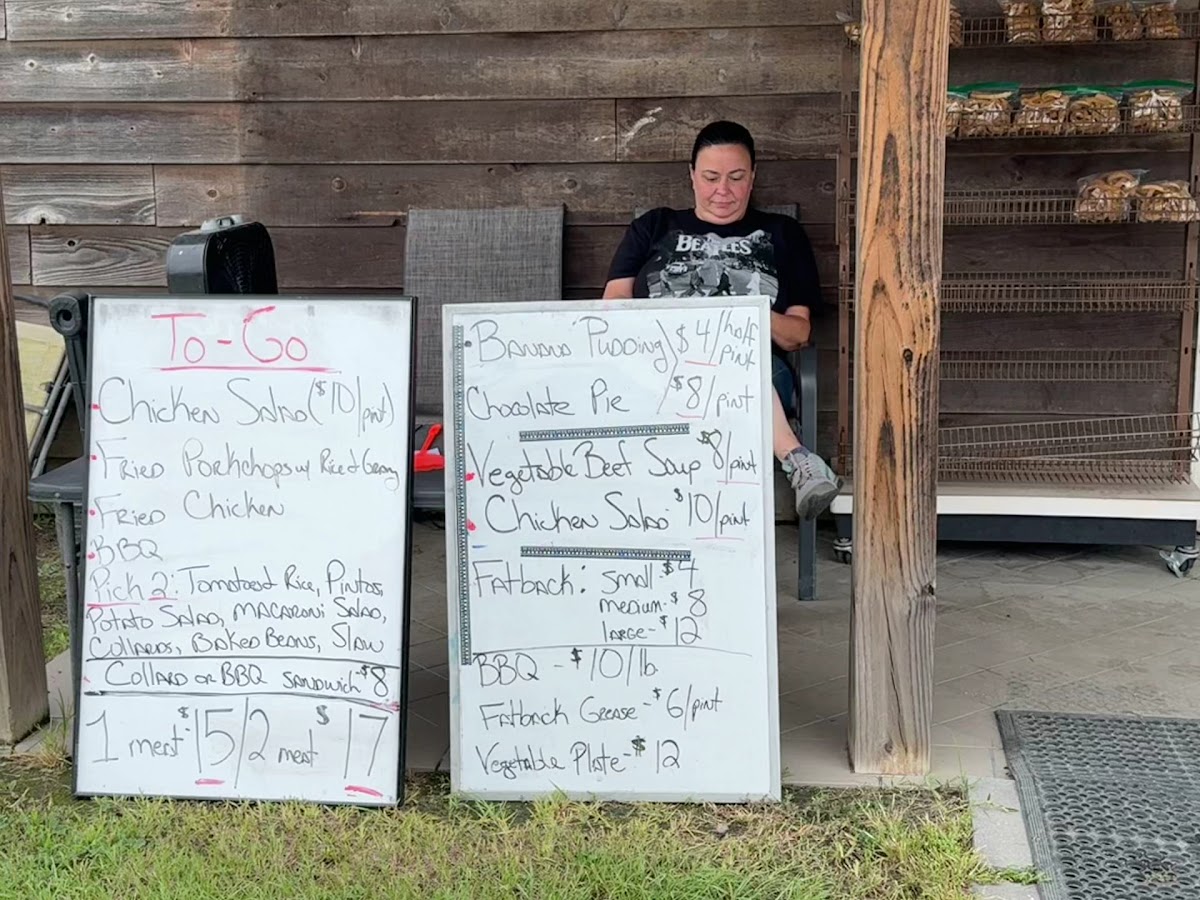 To-Go
Chicken Salad ($10/pint)
Fried Porkchops w/ Rice & Gravy
Fried Chicken
BBQ
Pick 2: Tomatoes & Rice, Pintos,
Potato Salad, Macaroni Salad,
Collards, Baked Beans, Slaw
Collard or BBQ sandwich-$8
1 meat-$15/2 meat $17
Banana Pudding) $4/half pint
Chocolate Pie /$8/pint
Vegetable Beef Soup $8/pint
Chicken Salad $10/pint
Fatback: small-$4
medium-$8
large-$12
BBQ - $10/lb
Fatback Grease-$6/pint
Vegetable Plate-$12
BEATLES